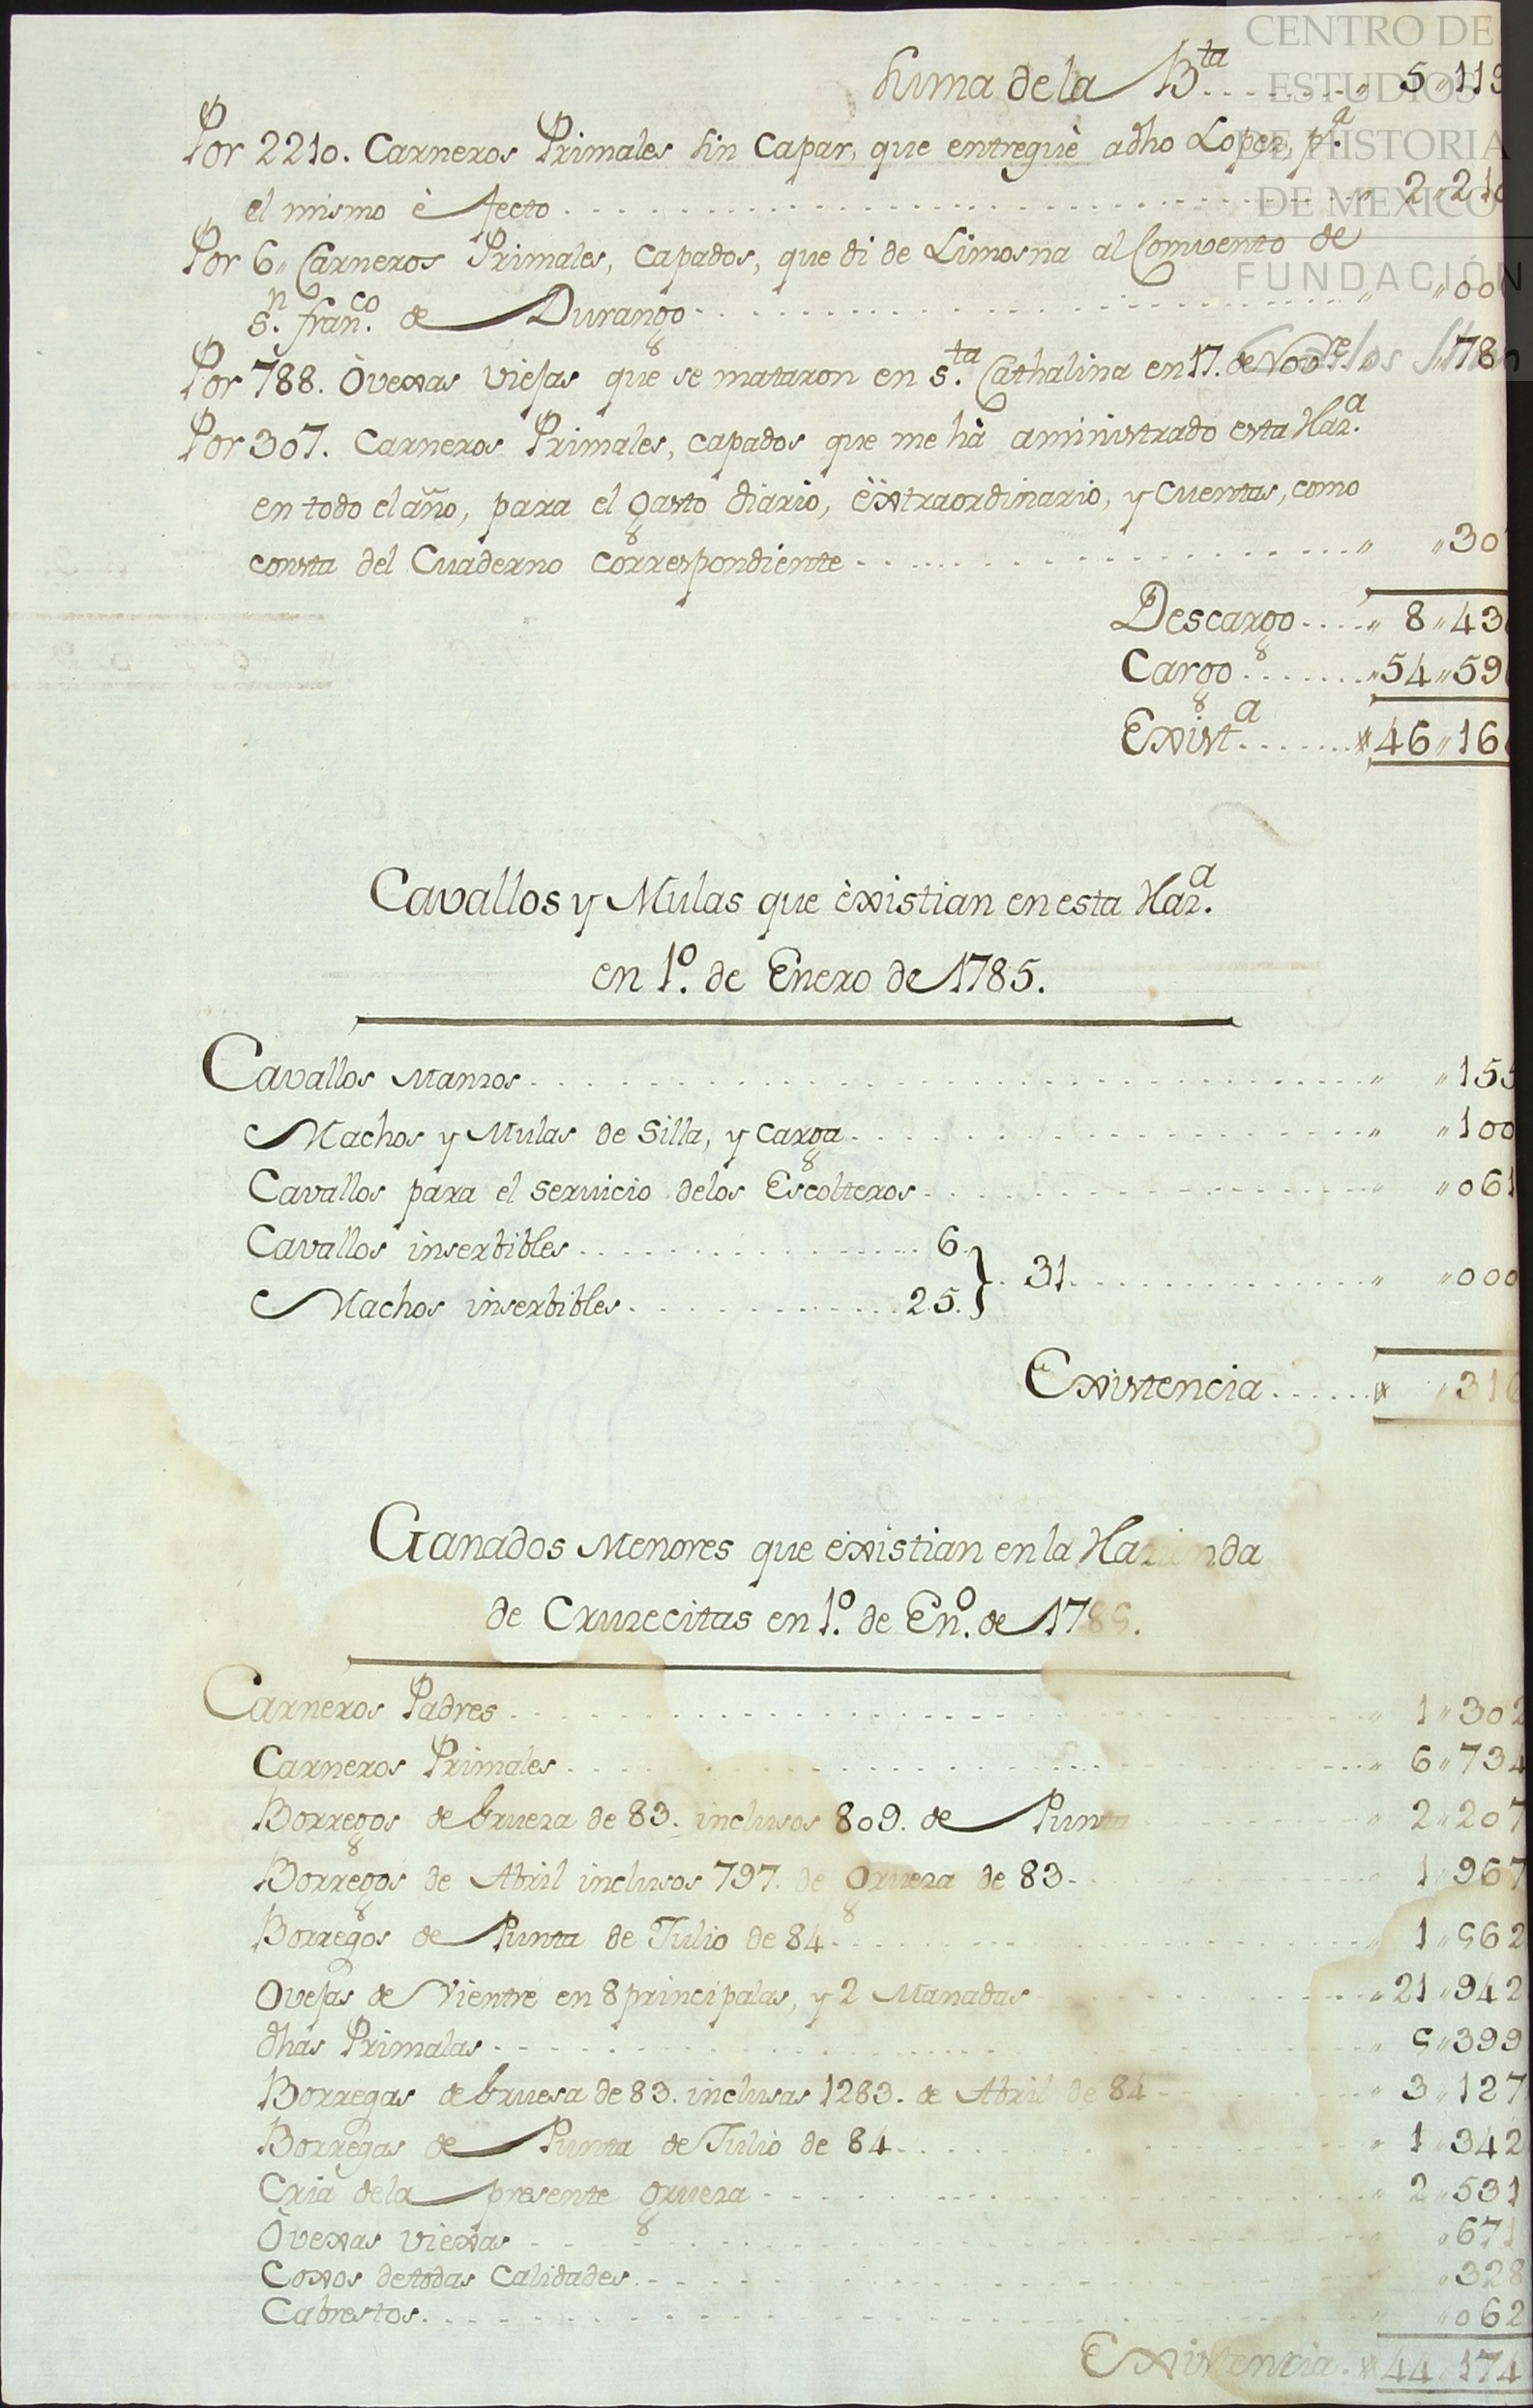 CENTRO DE
ESTUDIOS
DE HISTORIA
DE MEXICO
FUNDACIÓN
Suma de la B.ta . . . . . . . . „ 5„113
Por 2210. Carneros Primales sin Capar, que entreguè adho Lopez, p.a
el mismo èfecto . . . . . . . . „ 2„210
Por 6„ Carneros Primales, capados, que di de Limosna al Comvento de
S.n fran.co de Durango . . . . . . . . „ „006
Por 788. Òvexas viejas que se mataron en S.ta Cathalina en 17. de Nov.re „788
Por 307. Carneros Primales, capados que me hà aministrado esta Haz.a
en todo el año, para el gasto diario, èxtraordinario, y cuentas, como
consta del Cuaderno correspondiente . . . . . . . . „ „307
Descargo . . . . „ 8„43
Cargo . . . . . . „54„59
Exist.a . . . . . . „46„16
Cavallos y Mulas que èxistian en esta Haz.a
en 1.o de Enero de 1785.
Cavallos Manzos . . . . . . . . „ „155
Machos y Mulas de Silla, y carga . . . . . . . . „ „100
Cavallos para el servicio delos Escolteros . . . . . . . . „ „061
Cavallos inserbibles . . . . . . . . 6.
Machos inserbibles . . . . . . . . 25. } . 31 . . . . . . . . „ „000
Existencia . . . . . . „ „316
Ganados Menores que èxistian en la Hazienda
de Cruzecitas en 1.o de En.o de 1785.
Carneros Padres . . . . . . . . „ 1„302
Carneros Primales . . . . . . . . „ 6„734
Borregos de Grueza de 83. inclusos 809. de Punta . . . . „ 2„207
Borregos de Abril inclusos 797. de grueza de 83 . . . . 1„967
Borregos de Punta de Julio de 84 . . . . . . . . „ 1„562
Ovejas de Vientre en 8 principalas, y 2 Manadas . . . . „21„942
dhas Primalas . . . . . . . . „ 5„399
Borregas de Gruesa de 83. inclusas 1283. de Abril de 84 . . . . „ 3„127
Borregas de Punta de Julio de 84 . . . . . . . . „ 1„342
Cria dela presente grueza . . . . . . . . „ 2„531
Òvexas viexas . . . . . . . . „671
Coxos de todas calidades . . . . . . . . „328
Cabrestos . . . . . . . . „ „062
Existencia . „44„174